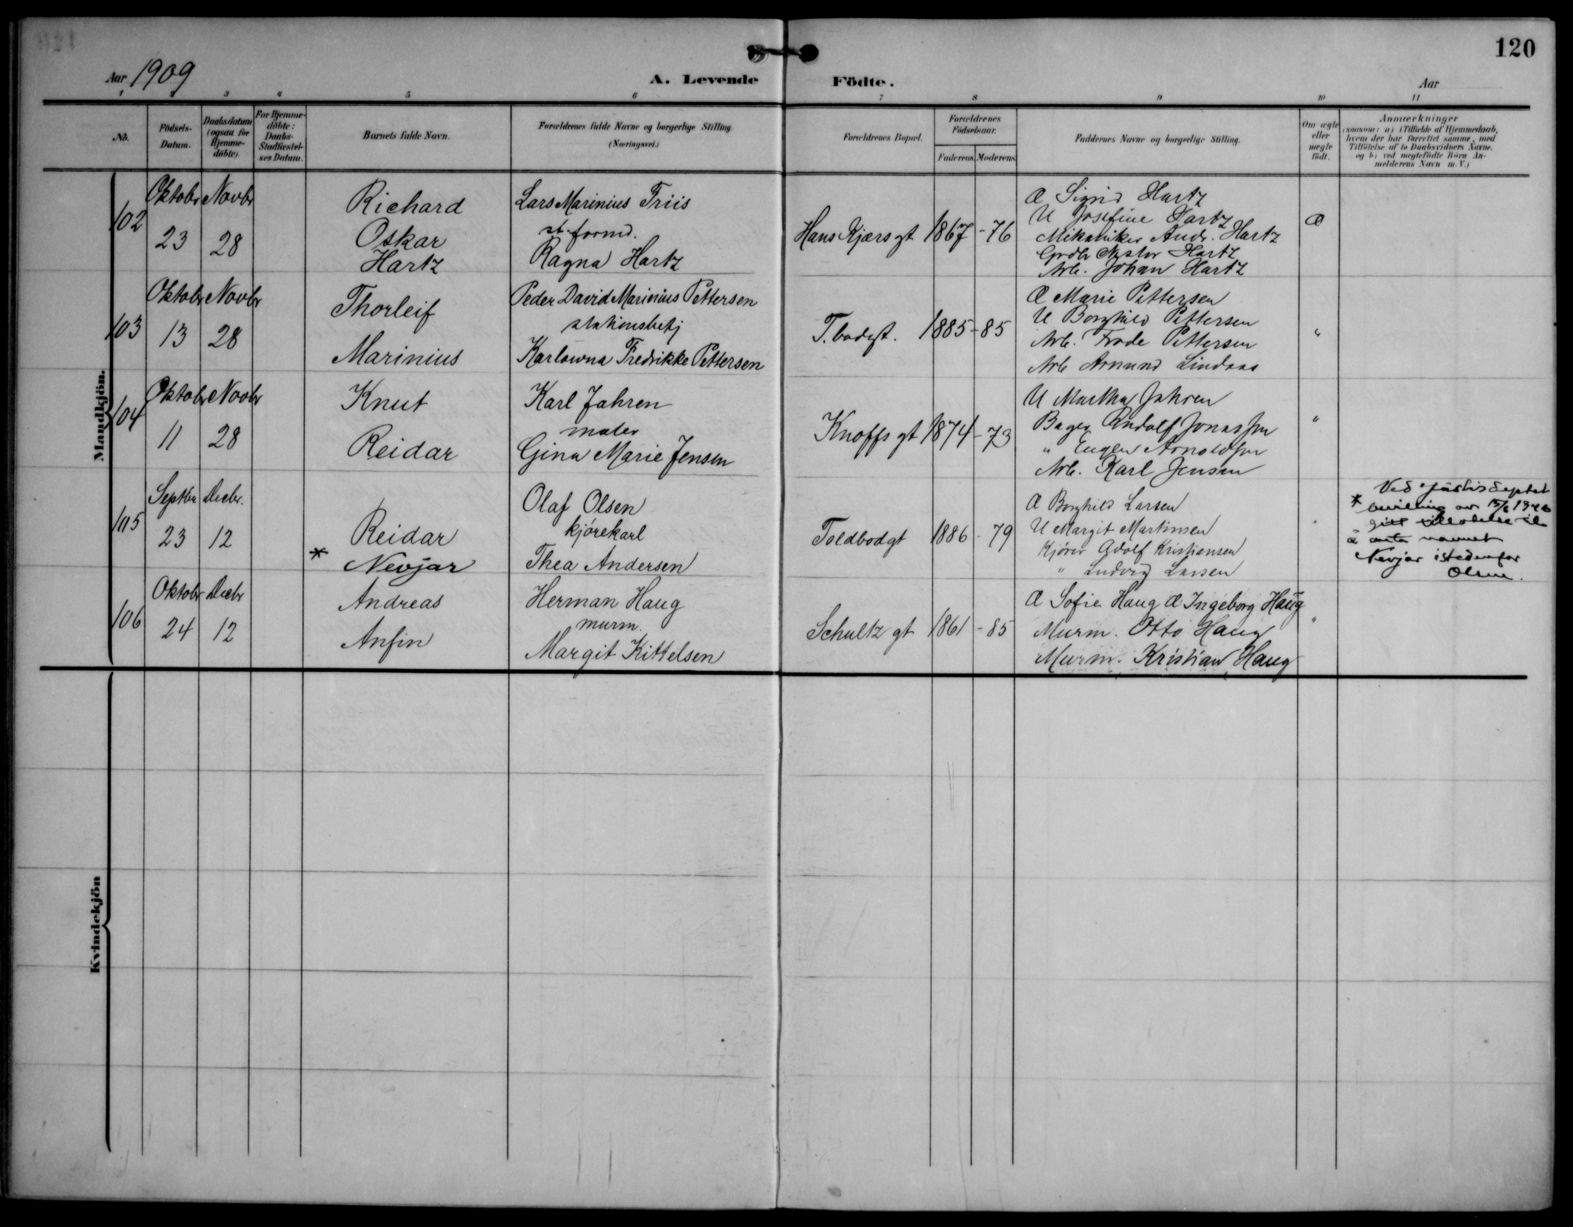 120
Aar 1909
A. Levende Födte.
Aar
1 2 3 4 5 6 7 8 9 10 11
No.
Födsels-Datum.
Daabsdatum (ogsaa for Hjemme-döbte).
For Hjemme-döbte: Daabs-Stadfæstel-ses Datum.
Barnets fulde Navn.
Forældrenes fulde Navne og borgerlige Stilling (Næringsvei.)
Forældrenes Bopæl.
Forældrenes Födselsaar.
Faderens. Moderens.
Faddernes Navne og borgerlige Stilling.
Om ægte eller uægte födt.
Anmærkninger
(saasom: a) i Tilfælde af Hjemmedaab, hvem der har forrettet samme, med Tilföielse af to Daabsvidners Navne, og b) ved uegtefödte Börn An-melderens Navn m. V.)
Mandkjön.
102
Oktobr 23
Novbr 28
Richard
Oskar
Hartz
Lars Marinius Friis
st. formd.
Ragna Hartz
Hans Kjærs gt
1867 - 76
Æ Sigrid Hartz
U Josefine Hartz
Mikaniker Andr. Hartz
Nestor Hartz
Arb. Johan Hartz
Æ
103
Oktobr 13
Novbr 28
Thorleif
Marinius
Peder David Marinius Pettersen
stationsbetj
Karlowna Fredrikke Pettersen
T.bodgt.
1885 - 85
Æ Marie Pettersen
U Borghild Pettersen
Arb. Frode Pettersen
Arb Amund Lindaas
"
104
Oktobr 11
Novbr 28
Knut
Reidar
Karl Jahren
maler
Gina Marie Jensen
Knoffs gt
1874 - 73
U Martha Jahren
Bager Rudolf Jonassen
" Eugen Arnoldsen
Arb. Karl Jensen
"
105
Septbr 23
Decbr. 12
Reidar
* Nevjar
Olaf Olsen
kjørekarl
Thea Andersen
Toldbodgt
1886 - 79
Æ Borghild Larsen
U Margit Martinsen
Kjører Adolf Kristiansen
" Ludvig Larsen
"
Ved Justisdeptet
* bevilling av 15/6 1940
gitt tilladelse til
å anta navnet
Nevjar istedenfor
Olsen.
106
Oktobr 24
Decbr 12
Andreas
Anfin
Herman Haug
murm.
Margit Kittelsen
Schultz gt
1861 - 85
Æ Sofie Haug Æ Ingeborg Haug
Murm. Otto Haug
Murm. Kristian Haug
"
Kvindekjön